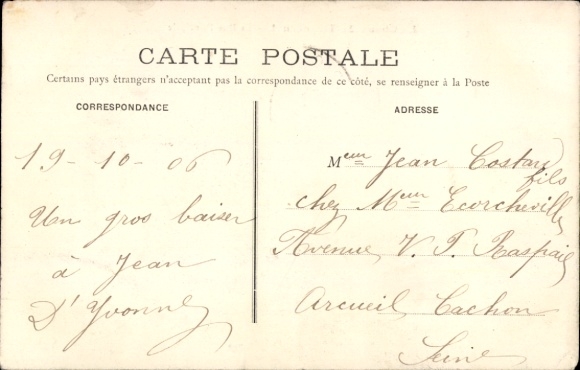 CARTE POSTALE
Certains pays étrangers n'acceptant pas la correspondance de ce côté, se renseigner à la Poste
CORRESPONDANCE
19-10-06
Un gros baiser
à Jean
D'Yvonne
ADRESSE
Meur Jean Costard
fils
chez Meur Ecorcheville
Avenue V. F. Raspail
Arcueil Cachon
Seine